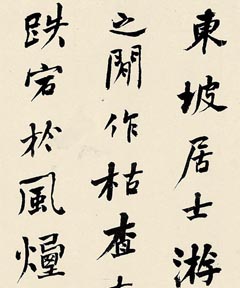 東坡居士游
之閒作枯查
跌宕於風煙